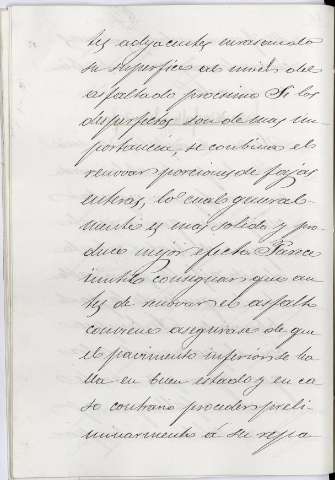 tes adyacentes enrasando
su superficie al nivel del
asfaltado proximo Si los
desperfectos son de mas im
portancia, se combina el
renovar porciones de fajas
enteras, lo cual general-
mente es mas solido y pro-
duce mejor efecto Parece
inutil consignar que an
tes de renovar el asfalto
conviene asegurarse de que
el pavimento inferior se ha
lla en buen estado y en ca
so contrario proceder preli-
minarmente á su repa